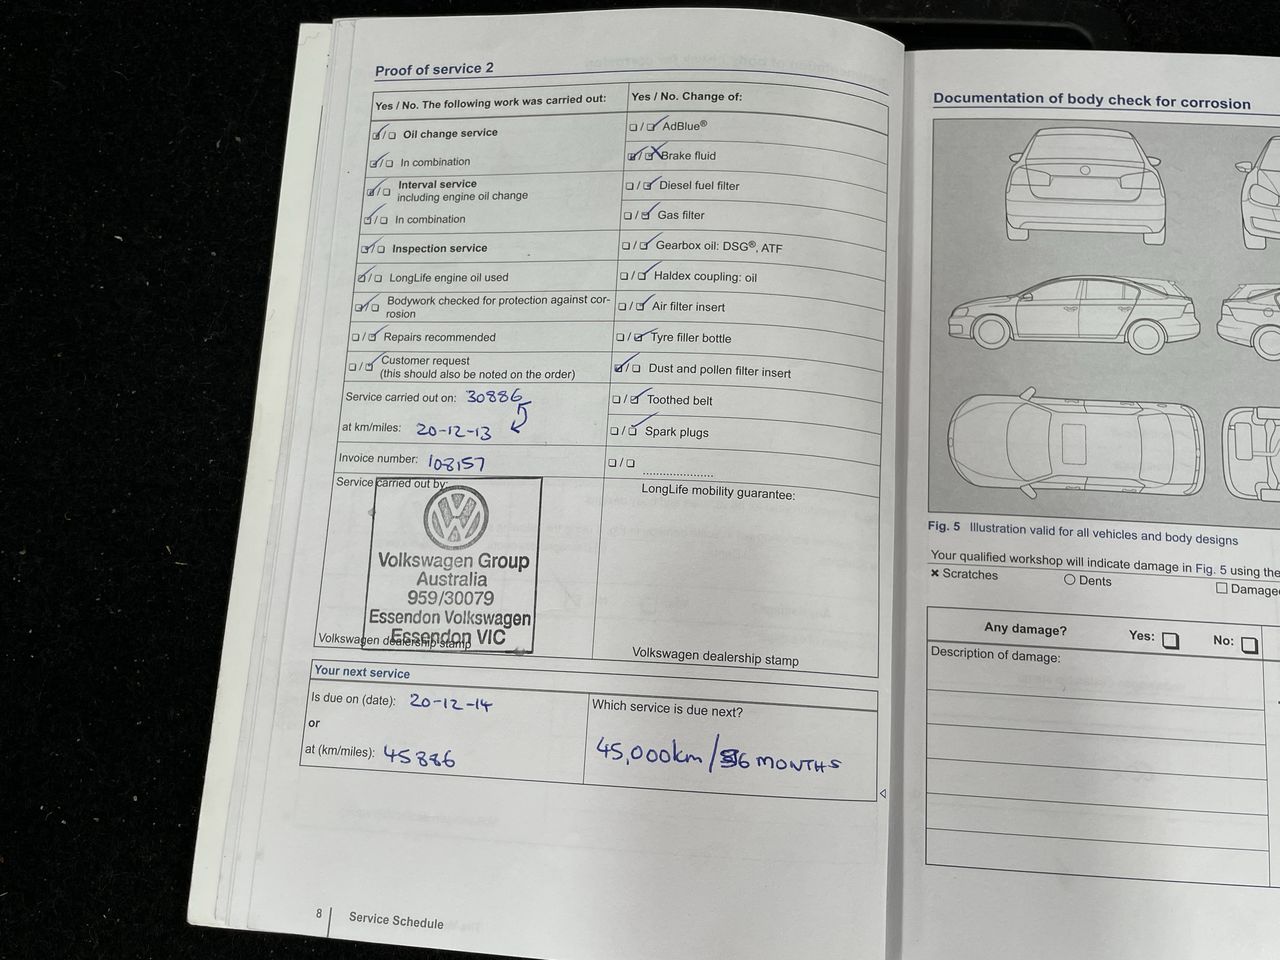 Proof of service 2
Yes / No. The following work was carried out:
Oil change service
In combination
Interval service
including engine oil change
In combination
Inspection service
LongLife engine oil used
Bodywork checked for protection against cor-
rosion
Repairs recommended
Customer request
(this should also be noted on the order)
Service carried out on: 30886
at km/miles: 20-12-13
Invoice number: 108157
Service carried out by:
Volkswagen Group
Australia
959/30079
Essendon Volkswagen
Essendon VIC
Volkswagen dealership stamp
Yes / No. Change of:
AdBlue®
Brake fluid
Diesel fuel filter
Gas filter
Gearbox oil: DSG®, ATF
Haldex coupling: oil
Air filter insert
Tyre filler bottle
Dust and pollen filter insert
Toothed belt
Spark plugs
LongLife mobility guarantee:
Volkswagen dealership stamp
Your next service
Is due on (date): 20-12-14
or
at (km/miles): 45886
Which service is due next?
45,000km / 36 MONTHS
8 Service Schedule
Documentation of body check for corrosion
Fig. 5 Illustration valid for all vehicles and body designs
Your qualified workshop will indicate damage in Fig. 5 using the
× Scratches
Dents
Damage
Any damage? Yes: No:
Description of damage: